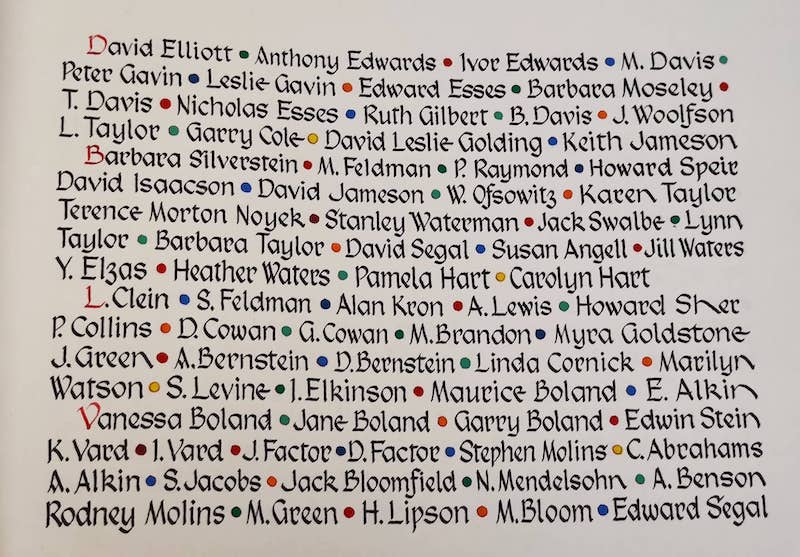 David Elliott • Anthony Edwards • Ivor Edwards • M. Davis •
Peter Gavin • Leslie Gavin • Edward Esses • Barbara Moseley •
T. Davis • Nicholas Esses • Ruth Gilbert • B. Davis • J. Woolfson
L. Taylor • Garry Cole • David Leslie Golding • Keith Jameson
Barbara Silverstein • M. Feldman • P. Raymond • Howard Speir
David Isaacson • David Jameson • W. Ofsowitz • Karen Taylor
Terence Morton Noyek • Stanley Waterman • Jack Swalbe • Lynn
Taylor • Barbara Taylor • David Segal • Susan Angell • Jill Waters
Y. Elzas • Heather Waters • Pamela Hart • Carolyn Hart
L. Clein • S. Feldman • Alan Kron • A. Lewis • Howard Sher
P. Collins • D. Cowan • G. Cowan • M. Brandon • Myra Goldstone
J. Green • A. Bernstein • D. Bernstein • Linda Cornick • Marilyn
Watson • S. Levine • J. Elkinson • Maurice Boland • E. Alkin
Vanessa Boland • Jane Boland • Garry Boland • Edwin Stein
K. Vard • I. Vard • J. Factor • D. Factor • Stephen Molins • C. Abrahams
A. Alkin • S. Jacobs • Jack Bloomfield • N. Mendelsohn • A. Benson
Rodney Molins • M. Green • H. Lipson • M. Bloom • Edward Segal